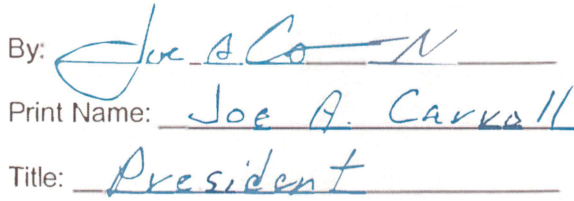 By: Joe A
Print Name: Joe A. Carroll
Title: President